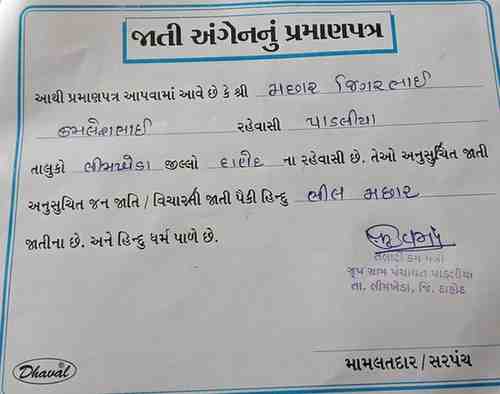 જાતી અંગેનનું પ્રમાણપત્ર
આથી પ્રમાણપત્ર આપવામાં આવે છે કે શ્રી મછાર જિગરભાઈ
કમલેશભાઈ રહેવાસી પાડલીયા
તાલુકો લીમખેડા જીલ્લો દાહોદ ના રહેવાસી છે. તેઓ અનુસુચિત જાતી
અનુસુચિત જન જાતિ / વિચારતી જાતી પૈકી હિન્દુ ભીલ મછાર
જાતીના છે. અને હિન્દુ ધર્મ પાળે છે.
તલાટી કમ મંત્રી
જુથ ગ્રામ પંચાયત પાડલીયા
તા. લીમખેડા, જિ. દાહોદ
Dhaval
મામલતદાર / સરપંચ